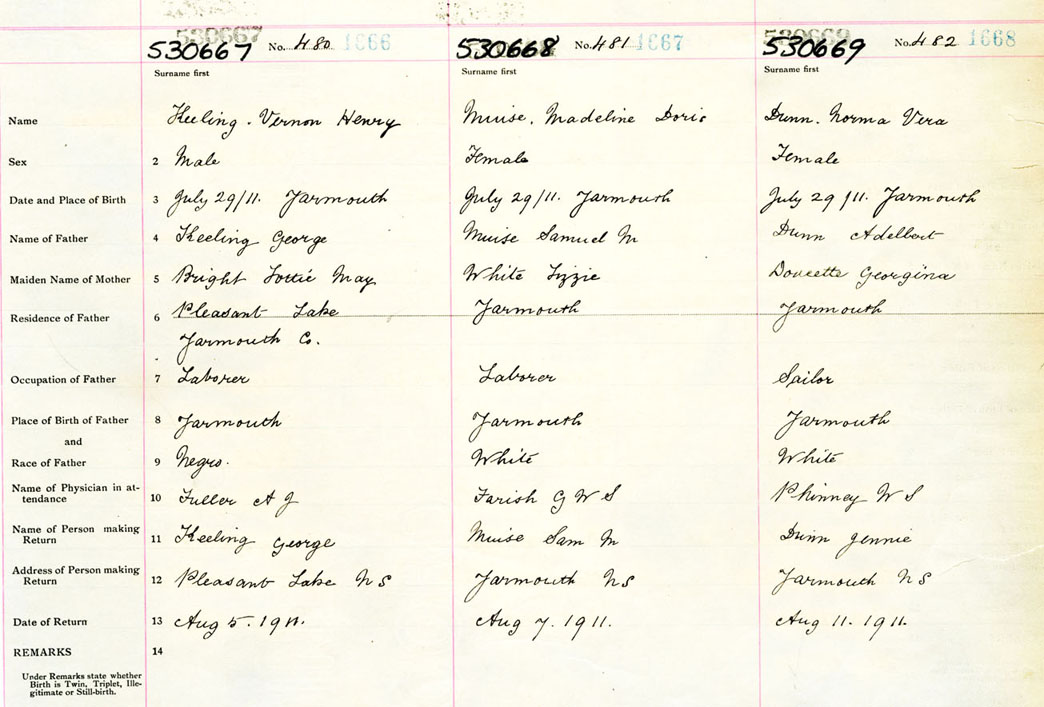 530667 No. 480 1666 530668 No. 481 1667 530669 No. 482 1668
Surname first Surname first Surname first
Name Keeling. Vernon Henry Muise. Madeline Doris Dunn. Norma Vera
Sex 2 Male Female Female
Date and Place of Birth 3 July 29/11. Yarmouth July 29/11. Yarmouth July 29/11. Yarmouth
Name of Father 4 Keeling George Muise Samuel M Dunn Adelbert
Maiden Name of Mother 5 Bright Lottie May White Lizzie Doucette Georgina
Residence of Father 6 Pleasant Lake Yarmouth Yarmouth
Yarmouth Co.
Occupation of Father 7 Laborer Laborer Sailor
Place of Birth of Father 8 Yarmouth Yarmouth Yarmouth
and
Race of Father 9 Negro. White White
Name of Physician in at-
tendance 10 Fuller A J Farish G W S Phinney W S
Name of Person making
Return 11 Keeling George Muise Sam M Dunn Jennie
Address of Person making
Return 12 Pleasant Lake N S Yarmouth N S Yarmouth N S
Date of Return 13 Aug 5. 1911. Aug 7. 1911. Aug 11. 1911.
REMARKS 14
Under Remarks state whether
Birth is Twin, Triplet, Ille-
gitimate or Still-birth.